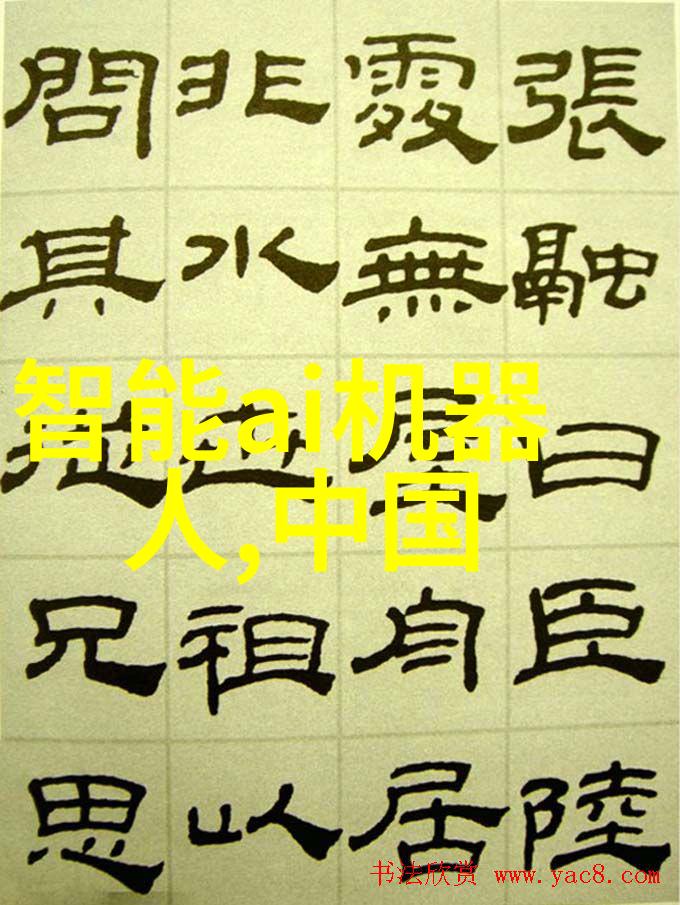 張融曰臣陸
處無屋舟居
非水世祖以
問其從兄思
智能ai机器
人,中国
书法欣赏 www.yac8.com